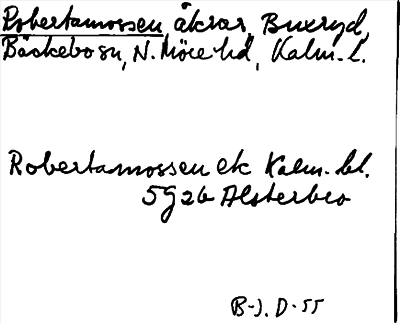 Robertamossen, åkrar, Buxryd,
Bäckebo sn, N. Möre hd, Kalm. l.
Robertamossen ek Kalm. bl.
5g26 Alsterbro
B-J. D-55